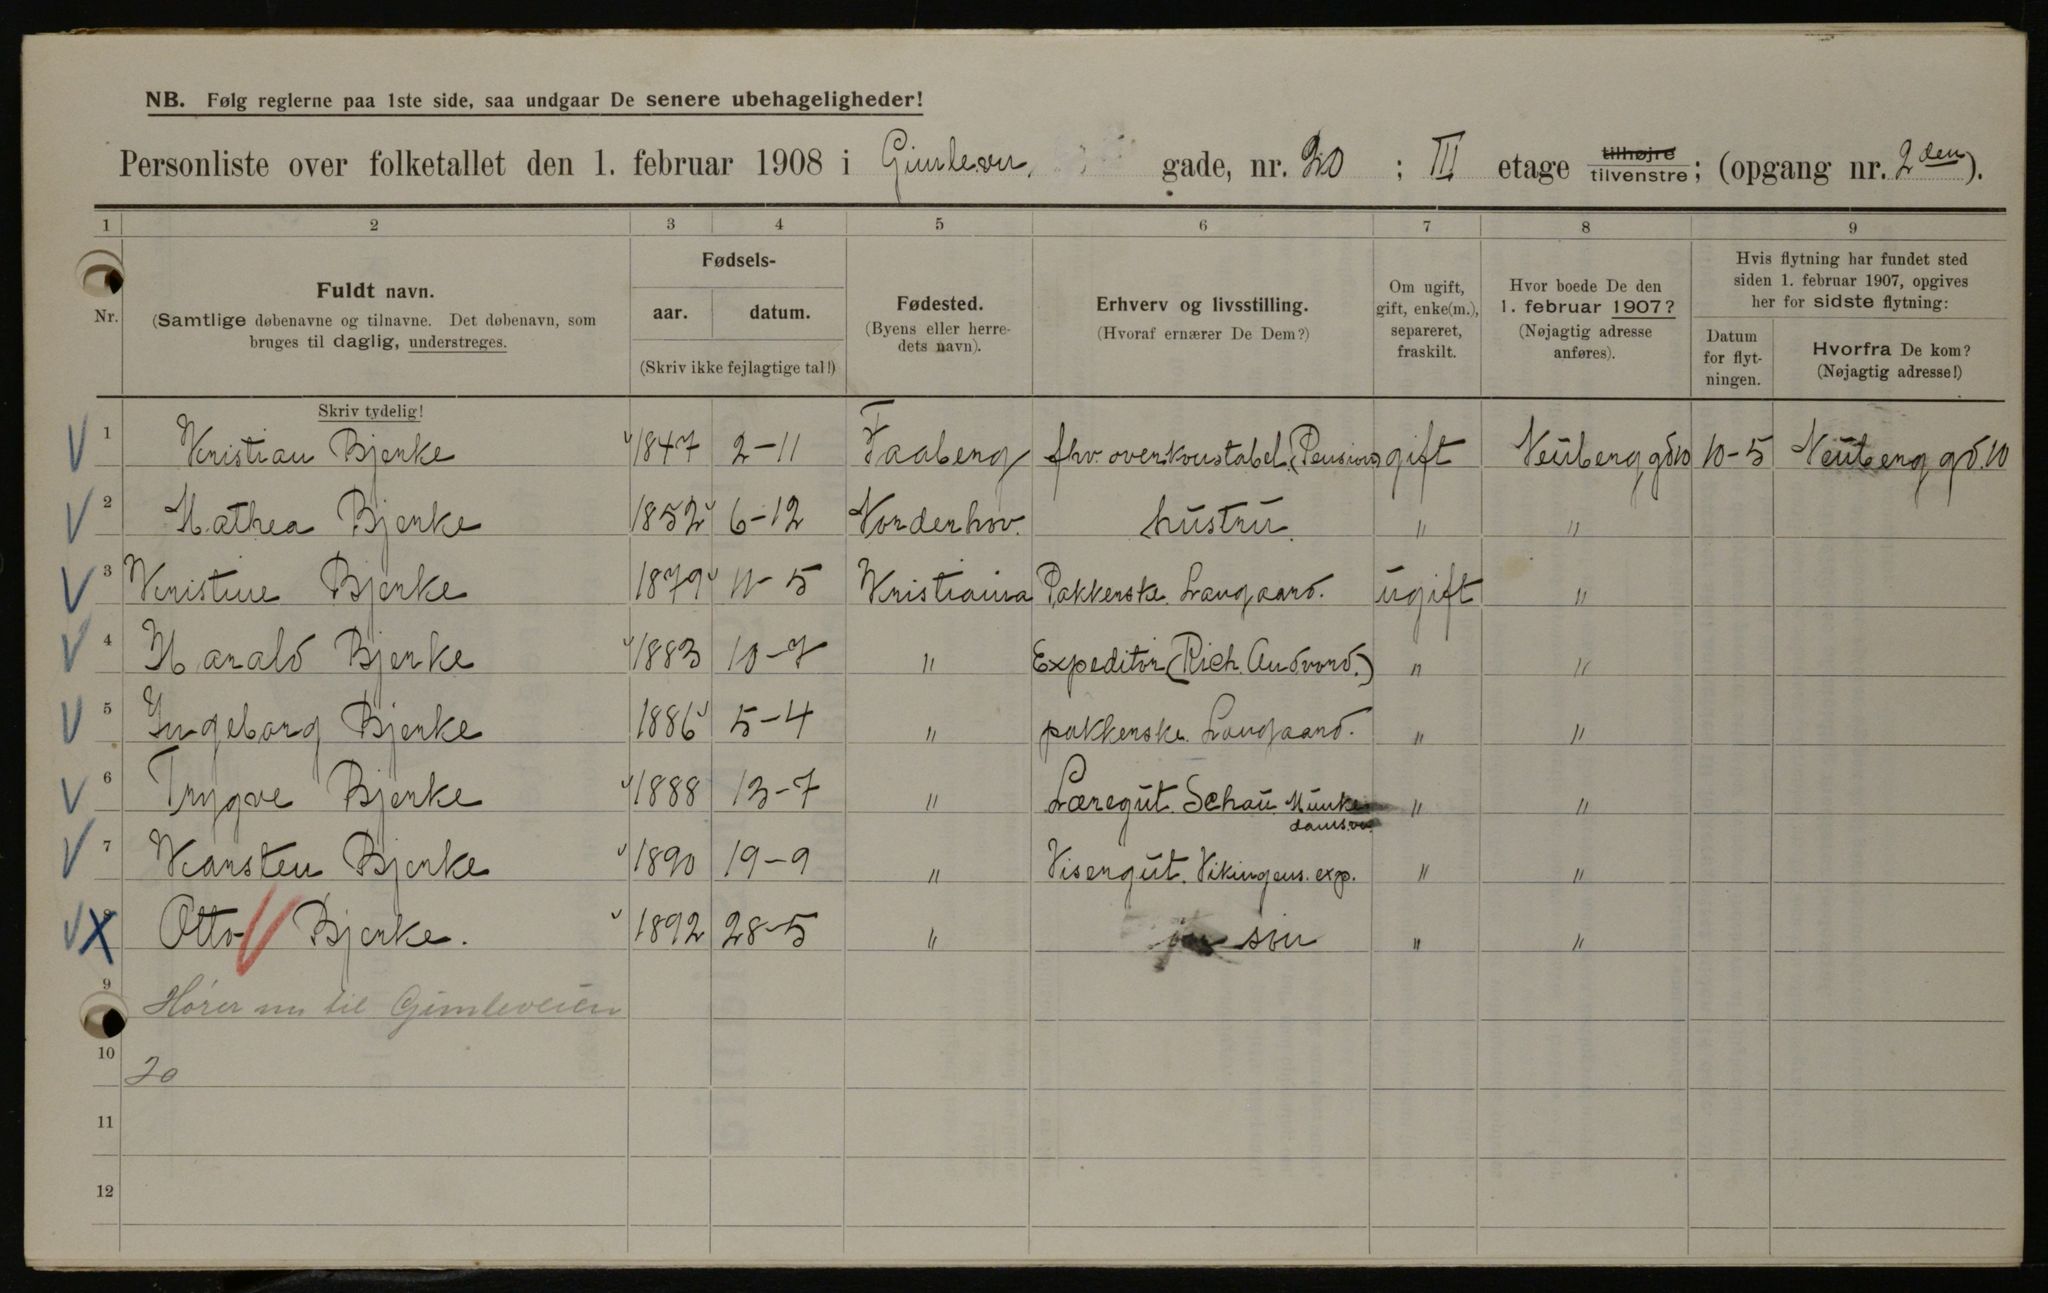 NB. Følg reglerne paa 1ste side, saa undgaar De senere ubehageligheder!
Personliste over folketallet den 1. februar 1908 i Gimlevn. gade, nr. 20 ; III etage tilhøjre tilvenstre; (opgang nr. 2den).
1 2 3 4 5 6 7 8 9
Nr.
Fuldt navn.
(Samtlige døbenavne og tilnavne. Det døbenavn, som
bruges til daglig, understreges.
Skriv tydelig!
Fødsels-
aar. datum.
(Skriv ikke fejlagtige tal!)
Fødested.
(Byens eller herre-
dets navn).
Erhverv og livsstilling.
(Hvoraf ernærer De Dem?)
Om ugift,
gift, enke(m.),
separeret,
fraskilt.
Hvor boede De den
1. februar 1907?
(Nøjagtig adresse
anføres).
Hvis flytning har fundet sted
siden 1. februar 1907, opgives
her for sidste flytning:
Datum
for flyt-
ningen.
Hvorfra De kom?
(Nøjagtig adresse!)
1 Kristian Bjerke 1847 2-11 Faaberg fhv. overkonstabel (Pension) gift Neuberg gd 10 10-5 Neuberg gd. 10
2 Mathea Bjerke 1852 6-12 Norderhov. hustru. " "
3 Kristine Bjerke 1879 11-5 Kristiania Pakkerske. Langaard. ugift "
4 Harald Bjerke 1883 10-7 " Expeditør (Rich. Andvord.) " "
5 Ingeborg Bjerke 1886 5-4 " pakkerske. Langaard. " "
6 Trygve Bjerke 1888 13-7 " Læregut. Schou Munke
damsvn. " "
7 Karsten Bjerke 1890 19-9 " Visergut. Vikingens. exp. " "
8 Otto Bjerke. 1892 28-5 " søn " "
9 Hører nu til Gimleveien
10 20
11
12